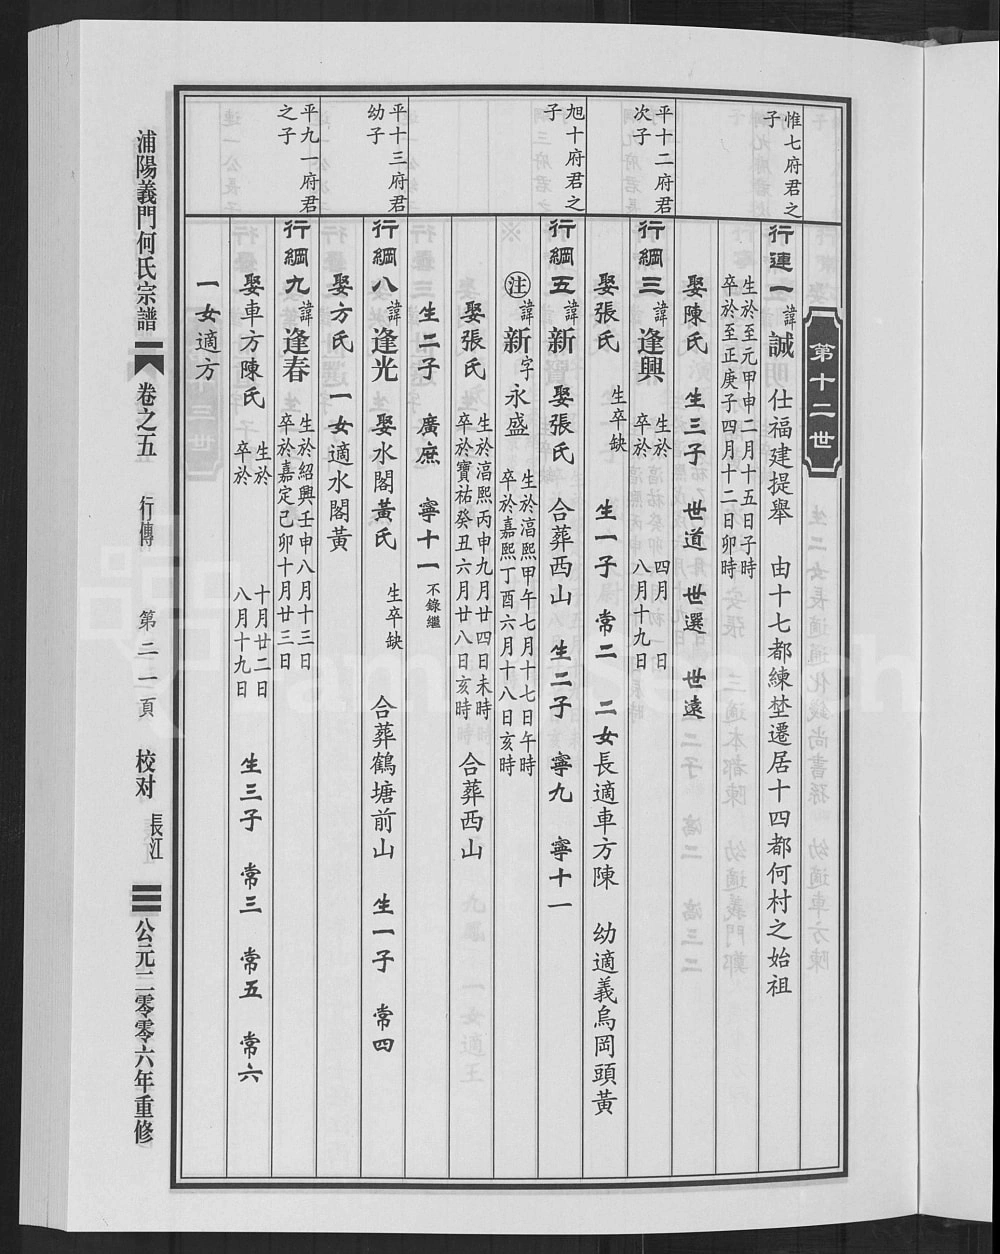 第十二世
惟七府君之子
行連一諱誠 仕福建提舉 由十七都練埜遷居十四都何村之始祖
生於至元甲申二月十五日子時
卒於至正庚子四月十二日卯時
娶陳氏 生三子 世道 世選 世遠
平十二府君次子
行綱三諱逢興 生於 四月 日
卒於 八月十九日
娶張氏 生卒缺 生一子 常二 二女長適車方陳 幼適義烏岡頭黃
旭十府君之子
行綱五諱新 娶張氏 合葬西山 生二子 寧九 寧十一
注 諱新字永盛 生於淳熙甲午七月十七日午時
卒於嘉熙丁酉六月十八日亥時
娶張氏 生於淳熙丙申九月廿四日未時
卒於寶祐癸丑六月廿八日亥時 合葬西山
生二子 廣庶 寧十一不錄繼
平十三府君幼子
行綱八諱逢光 娶水閣黃氏 生卒缺 合葬鶴塘前山 生一子 常四
娶方氏 一女適水閣黃
平九一府君之子
行綱九諱逢春 生於紹興壬申八月十三日
卒於嘉定己卯十月廿三日
娶車方陳氏 生於 十月廿二日
卒於 八月十九日 生三子 常三 常五 常六
一女適方
浦陽義門何氏宗譜 卷之五 行傳 第二一頁 校对 長江 公元二零零六年重修